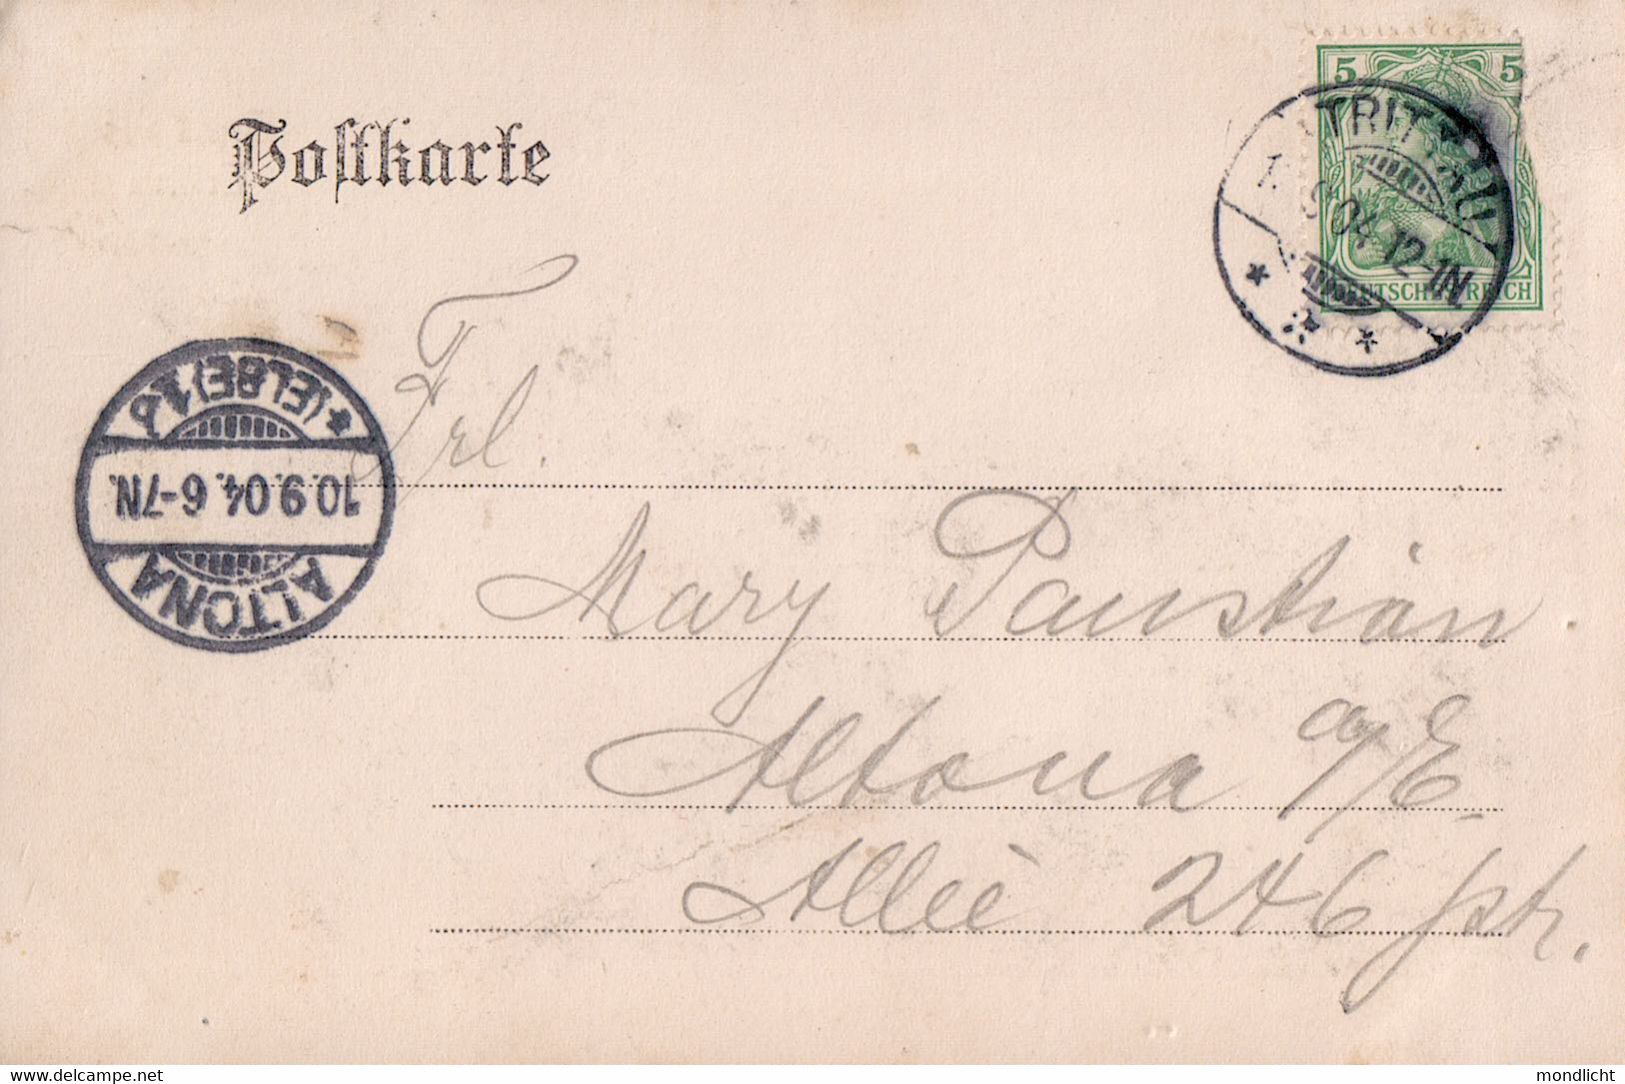 Postkarte
5 5
DEUTSCHES REICH
TRITTAU
9.04. 12-1N.
ALTONA
10.9.04. 6-7N.
* (ELBE) 1
Frl.
Mary Paustian.
Altona a/E
Allee 246 ptr.
www.delcampe.net
mondlicht